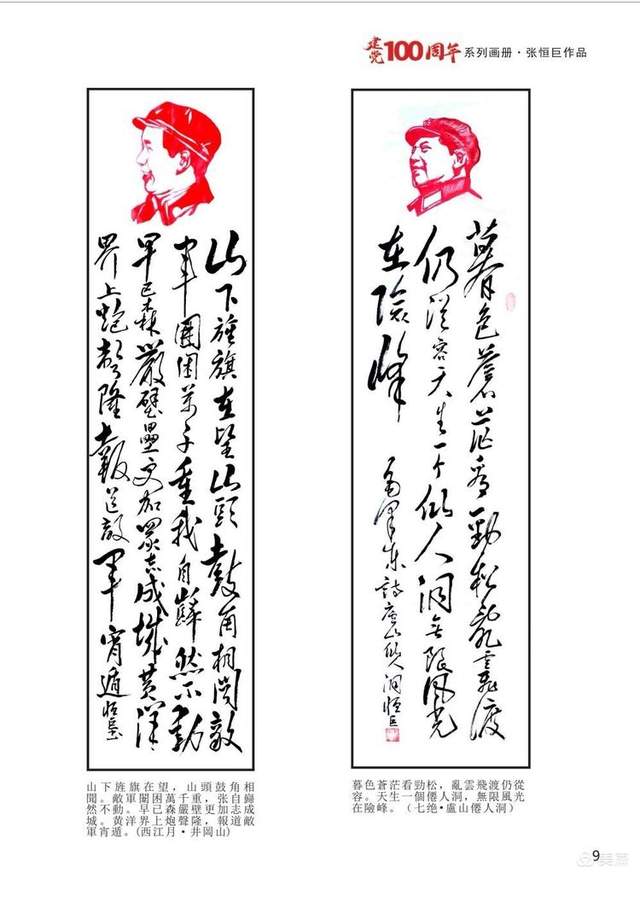 建党100周年 系列画册·张恒巨作品
山下旌旗在望山頭鼓角相闻敵
軍圍困萬千重我自巋然不動
早已森嚴壁壘更加眾志成城黄洋
界上炮聲隆報道敵軍宵遁恒巨
暮色蒼茫看勁松亂雲飛渡
仍從容天生一个仙人洞無限風光
在險峰
毛澤東詩廬山仙人洞恒巨
山下旌旗在望，山頭鼓角相
聞。敵軍闈困萬千重，张自巋
然不動。早已森嚴壁更加志成
城。黄洋界上炮聲隆，報道敵
軍宵遁。(西江月·井岡山)
暮色蒼茫看勁松，亂雲飛渡仍從
容。天生一個僊人洞，無限風光
在險峰。（七绝·盧山僊人洞）
9
美篇